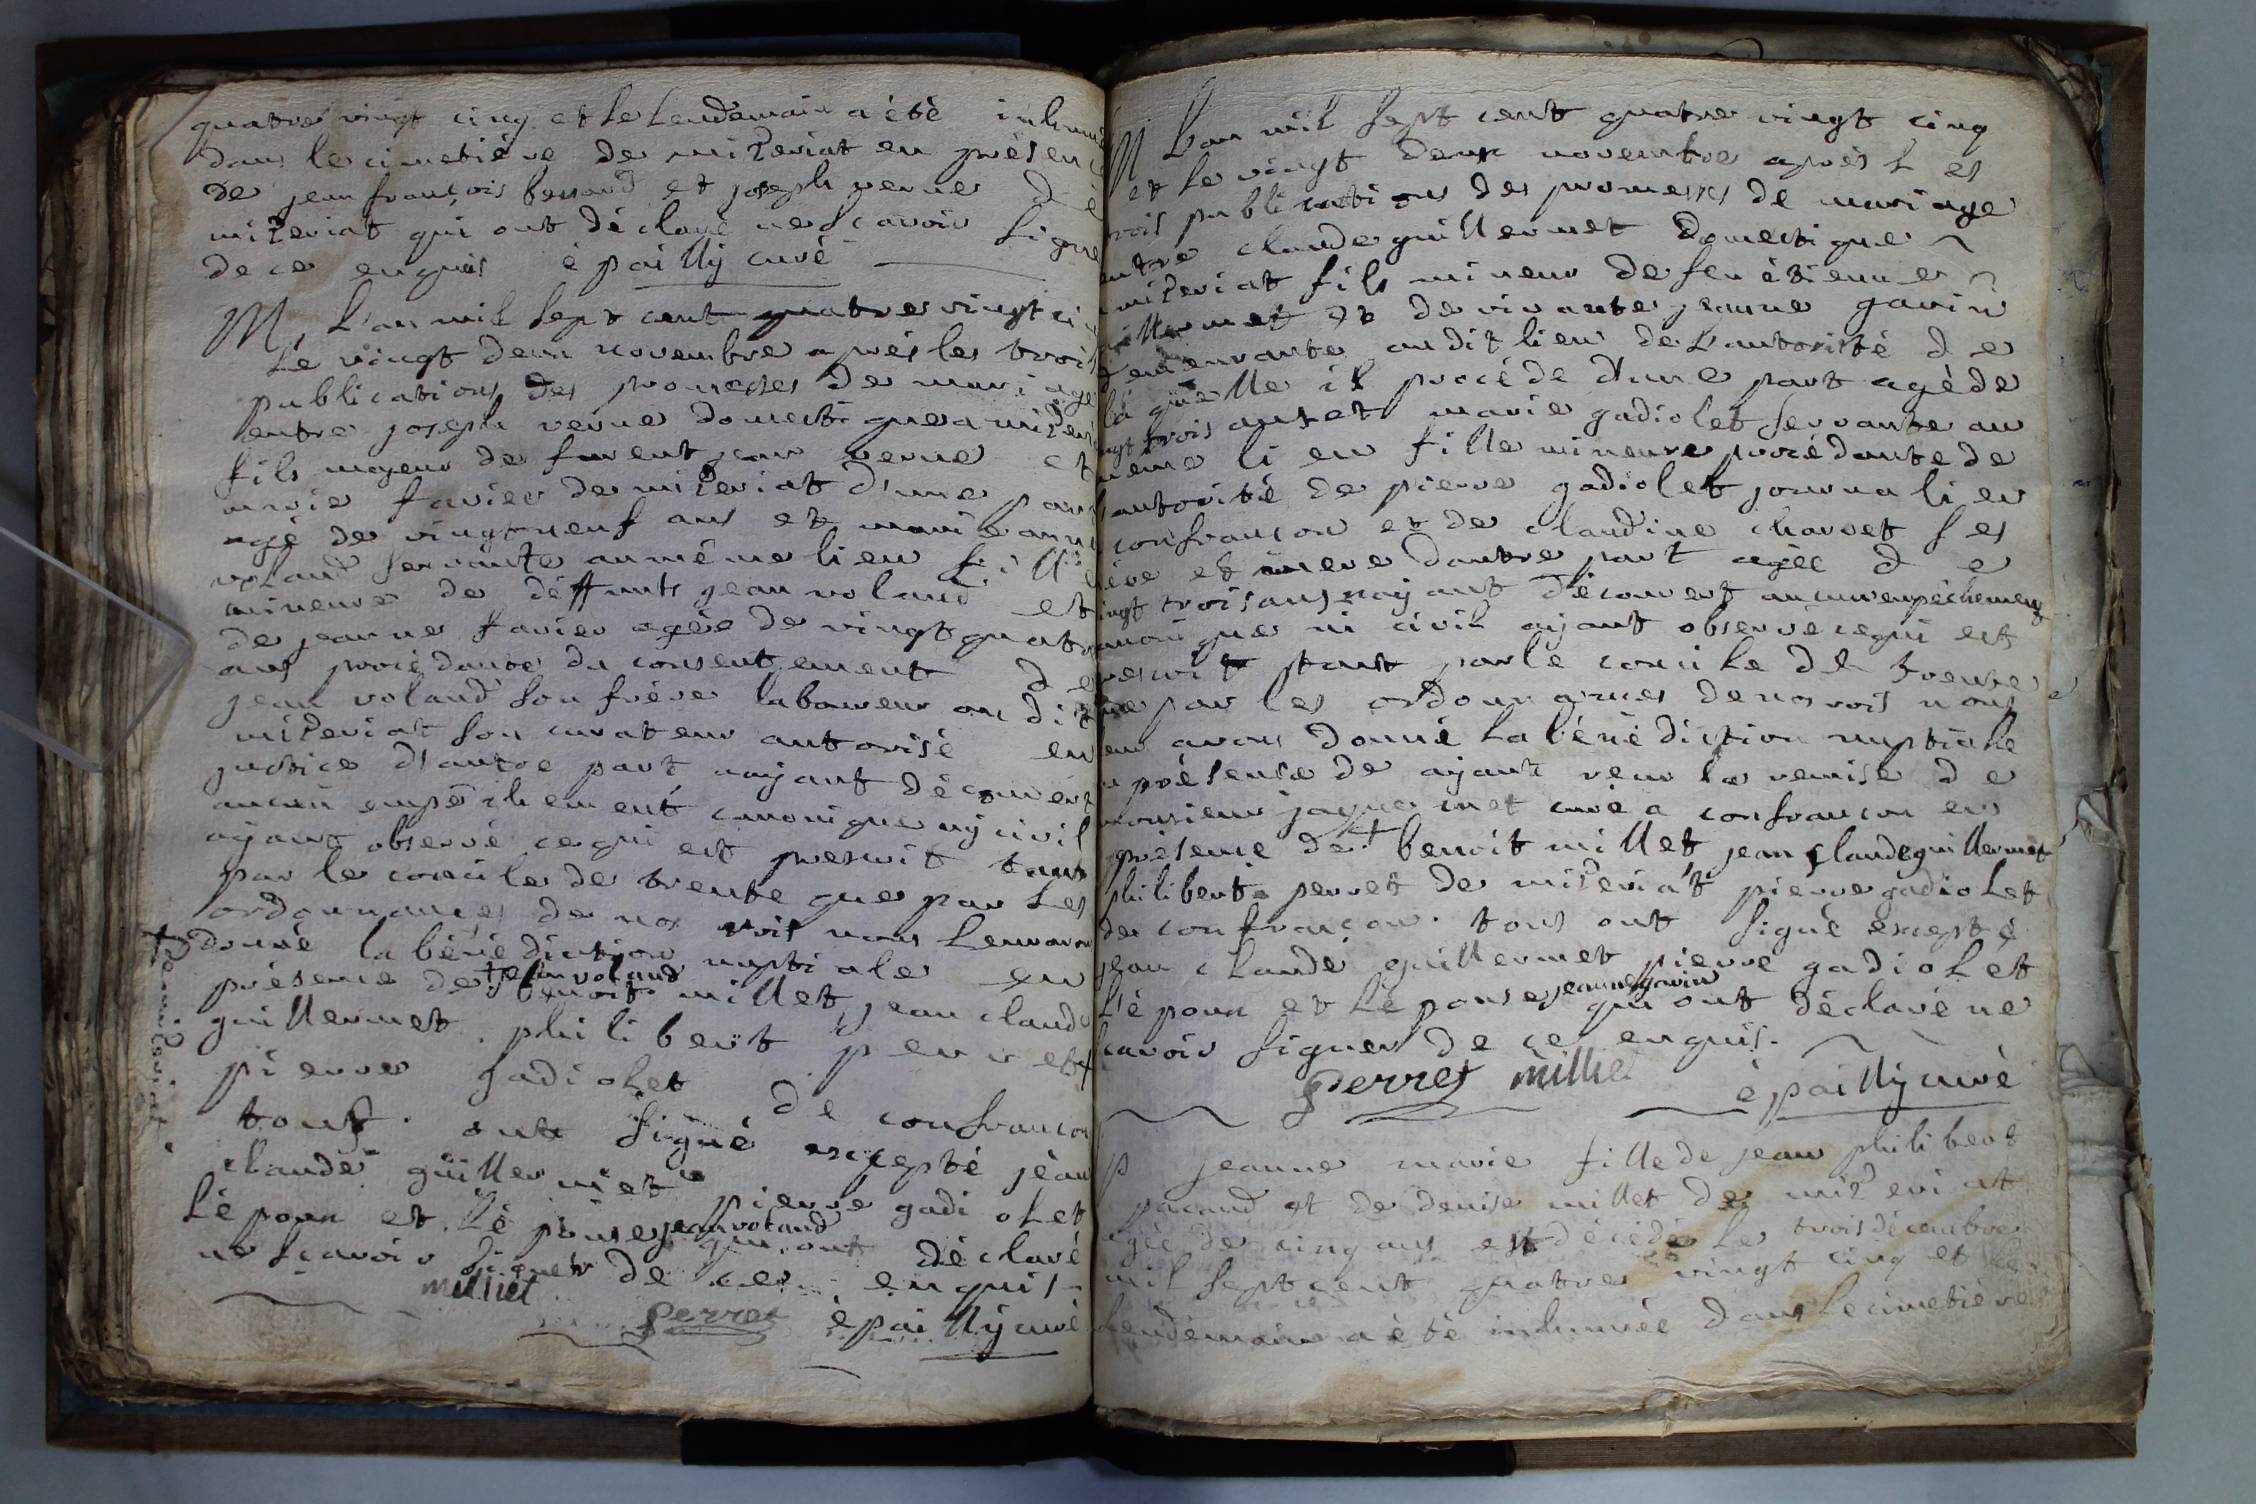 quatre vingt cinq et le lendemain a été inhumé
dans le cimetière de mizeriat en présence
de jean françois bessard et joseph verne de
mizeriat qui ont déclaré ne scavoir signer
de ce enquis épailly curé
M L'an mil sept cent quatre vingt cinq
Le vingt deux novembre après les trois
publications des promesses de mariage
entre joseph verne domestique a mizeriat
fils majeur de furent jean verne et
marie favier de mizeriat d'une part
agé de vingt neuf ans et marie anne
voland servante au même lieu fille
mineure de déffunts jean voland et
de jeanne favier agée de vingt quatre
ans procédante du consentement de
jean voland son frère laboureur au dit
mizeriat son curateur autorisé en
justice d'autre part nayant découvert
aucun empêchement canonique ny civil
ayant observé ce qui est prescrit tant
par le concile de trente que par les
ordonnances de nos rois nous leur avons
donné la bénédiction nuptiale en
présence de + jean voland benoit millet, jean claude
guillermet philibert perret +
pierre gadiolet de confrancon
tous ont signé excepté jean
claude guillermet pierre gadiolet
L'époux et L'épouse jean voland qui ont déclaré
ne scavoir signer de ce enquis
milliet perret épailly curé
+ de mizeriat
M L'an mil sept cent quatre vingt cinq
et le vingt deux novembre après les
trois publications des promesses de mariage
entre claude guillermet domestique
a mizeriat fils mineur de feu étienne
guillermet et de vivante jeanne gavin
demeurante au dit lieu de l'autorité de
la quelle il procéde d'une part agé de
vingt trois ans et marie gadiolet servante au
même lieu fille mineure procédante de
l'autorité de pierre gadiolet journalier
a confrancon et de claudine charvet ses
père et mère dautre part agée de
vingt trois ans nayant découvert aucun empéchement
canonique ni civil ayant observé ce qui est
prescrit tant par le concile de trente
que par les ordonnances de nos rois nous
leur avons donné la bénédiction nuptiale
en présence de ayant veu la remise de
monsieur jaquemet curé a confrancon en
présence de + benoit millet jean claude guillermet
philibert perret de mizeriat pierre gadiolet
de confrancon tous ont signé excepté
jean claude guillermet pierre gadiolet
L'époux et L'épouse jeanne gavin qui ont déclaré ne
scavoir signer de ce enquis.
perret milliet
épailly curé
p jeanne marie fille de jean philibert
pacaud et de denise millet de mizeriat
agée de cinq ans est décédée le trois décembre
mil sept cent quatre vingt cinq et le
lendemain a été inhumée dans le cimetière